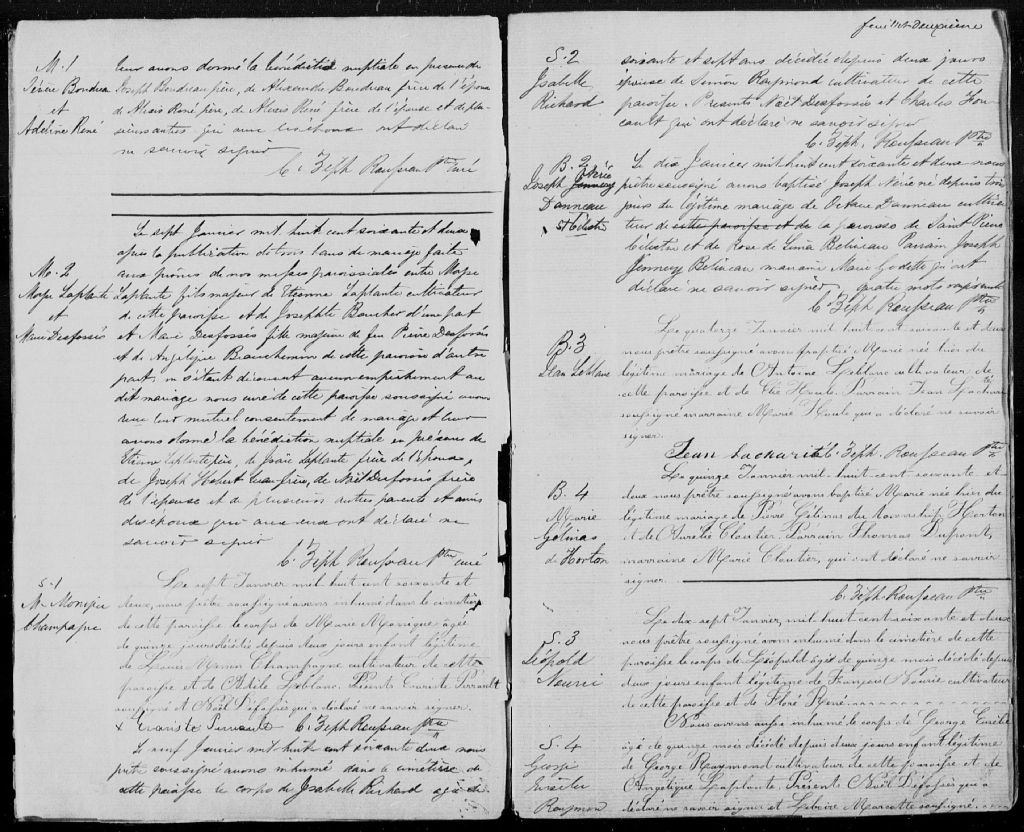 M. 1
Boudreau
et
Adéline René
leur avons donné la bénédiction nuptiale en présence de
Joseph Boudreau père, de Alexandre Boudreau frère de l'époux
de Alexis René père, de Alexis René frère de l'épouse et de plu-
qui ont déclaré
ne savoir signer
C. Zéph. Rousseau Ptre curé
Le sept Janvier mil huit cent soixante et deux
après la publication de trois bans de mariage faite
aux prônes de nos messes paroissiales entre Moyse
M. 2
Moyse Laplante
et
Marie Desfossés
Laplante fils majeur de Etienne Laplante cultivateur
de cette paroisse et de Josephte Boucher d'une part
et Marie Desfossés fille majeure de feu Pierre Desfossés
et de Angélique Beauchemin de cette paroisse d'autre
part, ne s'étant découvert aucun empêchement au
dit mariage nous curé de cette paroisse soussigné avons
reçu leur mutuel consentement de mariage et leur
avons donné la bénédiction nuptiale en présence de
Etienne Laplante père, de Laplante frère de l'époux,
de Joseph Hébert beau-frère, de Noël Desfossés frère
de l'épouse et de plusieurs autres parents et amis
des époux qui ont déclaré ne
savoir signer
C. Zéph. Rousseau Ptre curé
S. 1
M. Monique
Champagne
Le sept Janvier mil huit cent soixante et
deux, nous prêtre soussigné avons inhumé dans le cimetière
de cette paroisse le corps de Marie Monique âgée
de quinze jours décédée depuis deux jours enfant légitime
de Louis Champagne cultivateur de cette
paroisse et de Adèle Leblanc. Présents Evariste Perrault
soussigné et Noël Défossés qui a déclaré ne savoir signer
x Evariste Perreault C. Zéph. Rousseau Ptre
Le neuf Janvier mil huit cent soixante deux nous
prêtre soussigné avons inhumé dans le cimetière de
cette paroisse le corps de Isabelle Richard âgée de
feuillet deuxième
S. 2
Isabelle
Richard
soixante et sept ans décédée depuis deux jours
épouse de Simon Raymond cultivateur de cette
paroisse. Présents Noël Desfossés et Charles Fou-
cault qui ont déclaré ne savoir signer
C. Zéph. Rousseau Ptre
B. 2
Joseph Nérie
Danneau
St Célestin
Le dix Janvier mil huit cent soixante et deux nous
prêtre soussigné avons baptisé Joseph Nérie né depuis trois
jours du légitime mariage de Octave Danneau cultiva-
teur de cette paroisse et de la paroisse de Saint Pierre
Célestin et de Rose de Lima Béliveau Parrain Joseph
Béliveau marraine Marie Godette qui ont
déclaré ne savoir signer. quatre mots rayés nuls
C. Zéph. Rousseau Ptre
B. 3
Leblanc
Le quatorze Janvier mil huit cent soixante et deux
nous prêtre soussigné avons baptisé Marie née hier du
légitime mariage de Antoine Leblanc cultivateur de
cette paroisse et de Houle. Parrain Jean
soussigné marraine Marie Houle qui a déclaré ne savoir
signer.
Jean C. Zéph. Rousseau Ptre
B. 4
Marie
Gélinas
de Horton
Le quinze Janvier mil huit cent soixante et
deux nous prêtre soussigné avons baptisé Marie née hier du
légitime mariage de Pierre Gélinas du township Horton
et de Aurélie Cloutier. Parrain Thomas Dupont,
marraine Marie Cloutier, qui ont déclaré ne savoir
signer.
C. Zéph. Rousseau Ptre
S. 3
Léopold
Nourie
Le dix sept Janvier, mil huit cent soixante et deux
nous prêtre soussigné avons inhumé dans le cimetière de cette
paroisse le corps de Léopold âgé de quinze mois décédé depuis
deux jours enfant légitime de François Nourie cultivateur
de cette paroisse et de Flore René.
S. 4
George
Raymon
Nous avons aussi inhumé le corps de George
âgé de quinze mois décédé depuis deux jours enfant légitime
de George Raymond cultivateur de cette paroisse et de
Angélique Laplante. Présents Noël Défossés qui a
déclaré ne savoir signer et Marcotte soussigné.